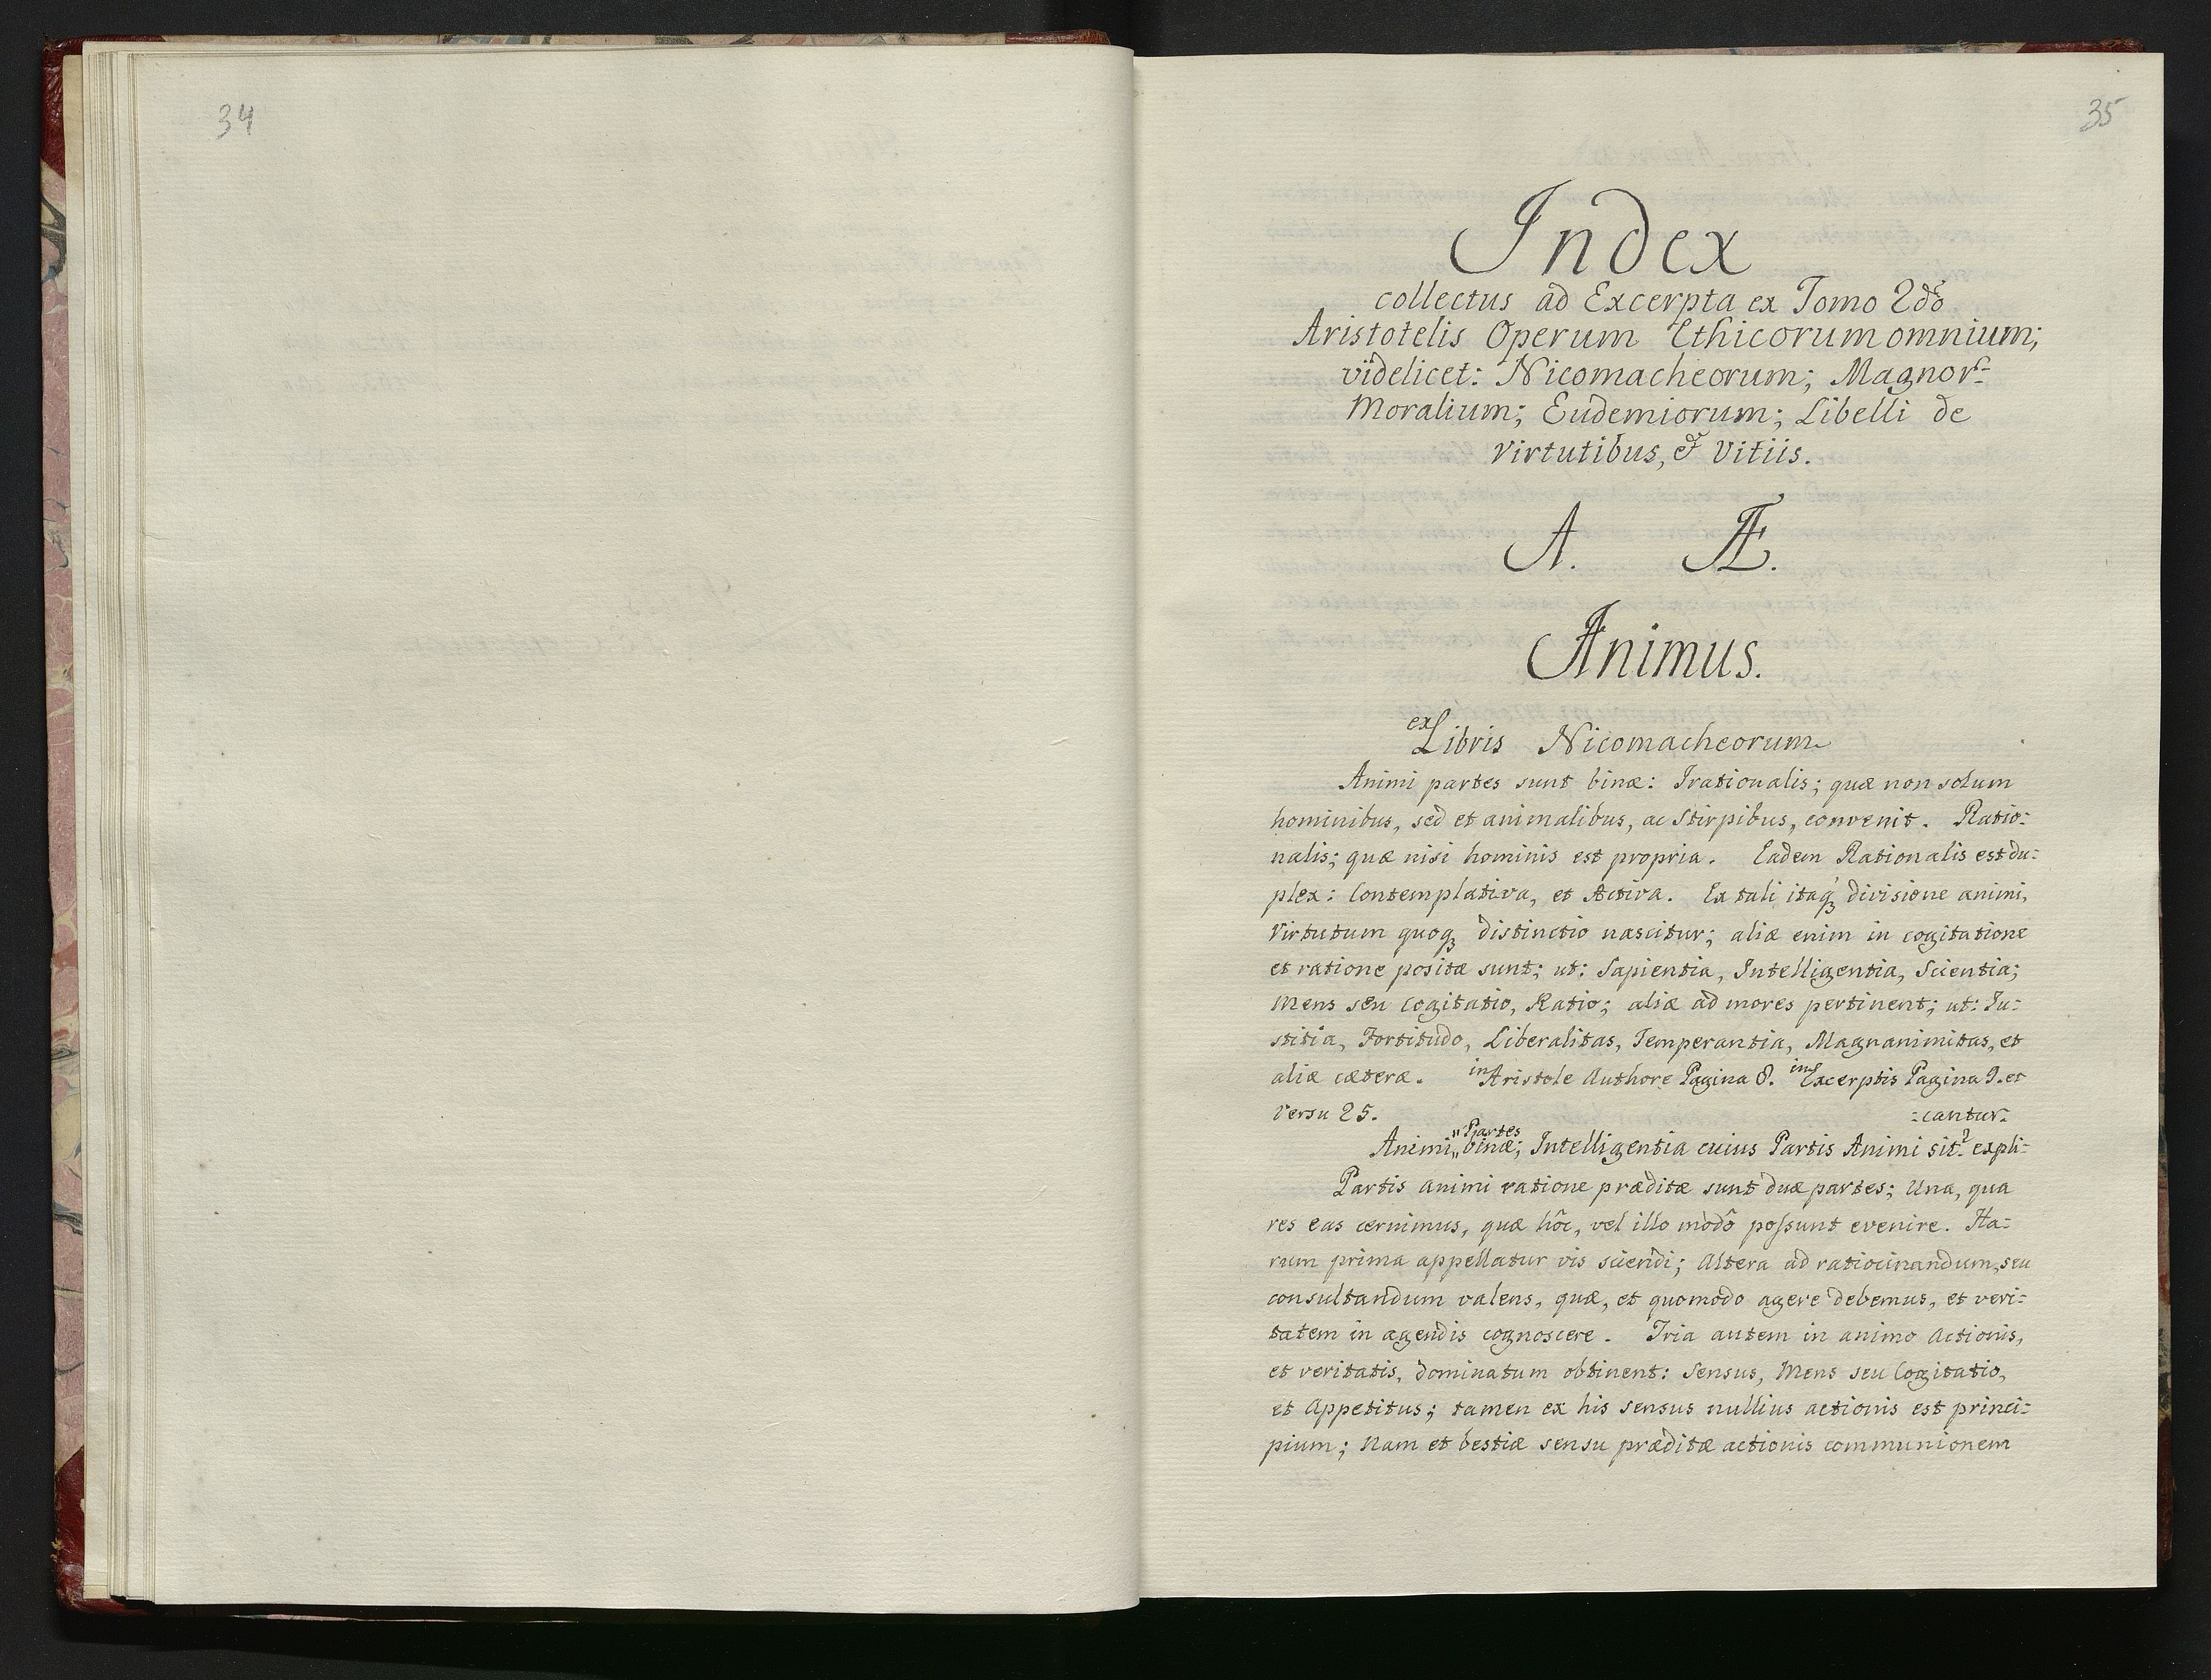 34
35
Index
collectus ad Excerpta ex Tomo 2do
Aristotelis Operum Ethicorum omnium;
videlicet: Nicomacheorum; Magnor:
Moralium; Eudemiorum; Libelli de
Virtutibus, et Vitiis.
A. Æ.
Animus.
ex Libris Nicomacheorum
Animi partes sunt binæ: Irationalis; quæ non solum
hominibus, sed et animalibus, ac Stirpibus, convenit. Ratio:
nalis; quæ nisi hominis est propria. Eadem Rationalis est du:
plex: Contemplativa, et Activa. Ex tali itaqꝫ divisione animi,
Virtutum quoqꝫ distinctio nascitur; aliæ enim in cogitatione
et ratione positæ sunt; ut: Sapientia, Intelligentia, Scientia;
Mens seu Cogitatio, Ratio; aliæ ad mores pertinent; ut: Iu:
stitia, Fortitudo, Liberalitas, Temperantia, Magnanimitas, et
aliæ cæteræ. in Aristole Authore Pagina 8. in Excerptis Pagina 9. et
Versu 25. :cantur.
Animi „Partes„ binæ; Intelligentia cuius Partis Animi sit? expli:
Partis animi ratione præditæ sunt duæ partes; Una, qua
res eas cernimus, quæ hôc, vel illo modô possunt evenire. Ha:
rum prima appellatur vis sciendi; Altera ad ratiocinandum, seu
consultandum valens, quæ, et quomodo agere debemus, et veri:
tatem in agendis cognoscere. Tria autem in animo Actionis,
et veritatis, dominatum obtinent: Sensus, Mens seu Cogitatio,
et Appetitus; tamen ex his sensus nullius actionis est princi:
pium; Nam et bestiæ sensu præditæ actionis communionem